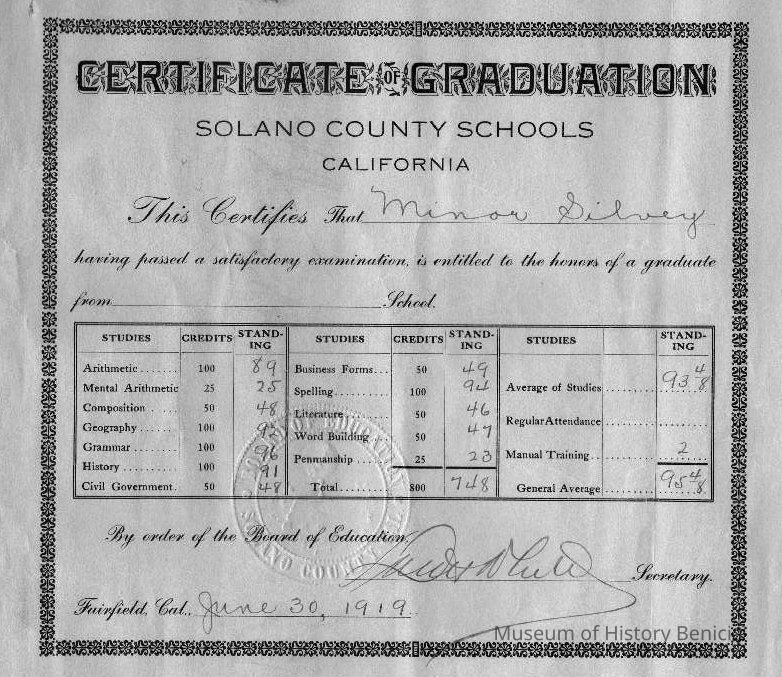 CERTIFICATE OF GRADUATION
SOLANO COUNTY SCHOOLS
CALIFORNIA
This Certifies That Minor Silvey
having passed a satisfactory examination, is entitled to the honors of a graduate
from School.
STUDIES CREDITS STAND-ING STUDIES CREDITS STAND-ING STUDIES STAND-ING
Arithmetic....... 100 89 Business Forms... 50 49
Mental Arithmetic 25 25 Spelling.......... 100 94 Average of Studies 93 4/8
Composition ..... 50 48 Literature........ 50 46
Geography....... 100 92 Word Building .. 50 47 Regular Attendance
Grammar........ 100 96 Penmanship ..... 25 23 Manual Training.. 2
History.......... 100 91
Civil Government. 50 48 Total......... 800 748 General Average 95 4/8
By order of the Board of Education,
Dan H White Secretary.
Fairfield, Cal., June 30, 1919
OF EDUCATION
SOLANO COUNTY
Museum of History Benicia